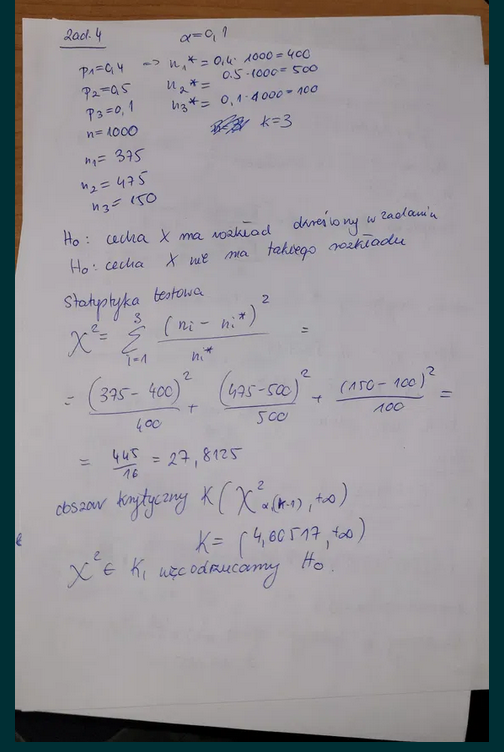 Zad. 4
α=0,1
p1=0,4 -> n1* = 0,4 · 1000 = 400
p2=0,5 n2* = 0.5 · 1000 = 500
p3=0,1 n3* = 0,1 · 1000 = 100
n=1000 k=3
n1 = 375
n2 = 475
n3 = 150
H0: cecha X ma rozkład określony w zadaniu
H0: cecha X nie ma takiego rozkładu
Statystyka testowa
χ² = Σ i=1 3 (ni - ni*)² / ni* =
= (375 - 400)² / 400 + (475 - 500)² / 500 + (150 - 100)² / 100 =
= 445/16 = 27,8125
obszar krytyczny K(χ² α,(k-1), +∞)
K = (4,60517, +∞)
χ² ∈ K, więc odrzucamy H0.